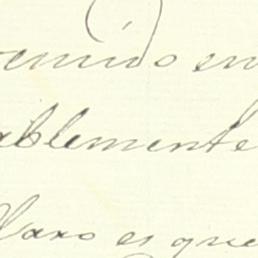 emido en
ablemente
Claro es que